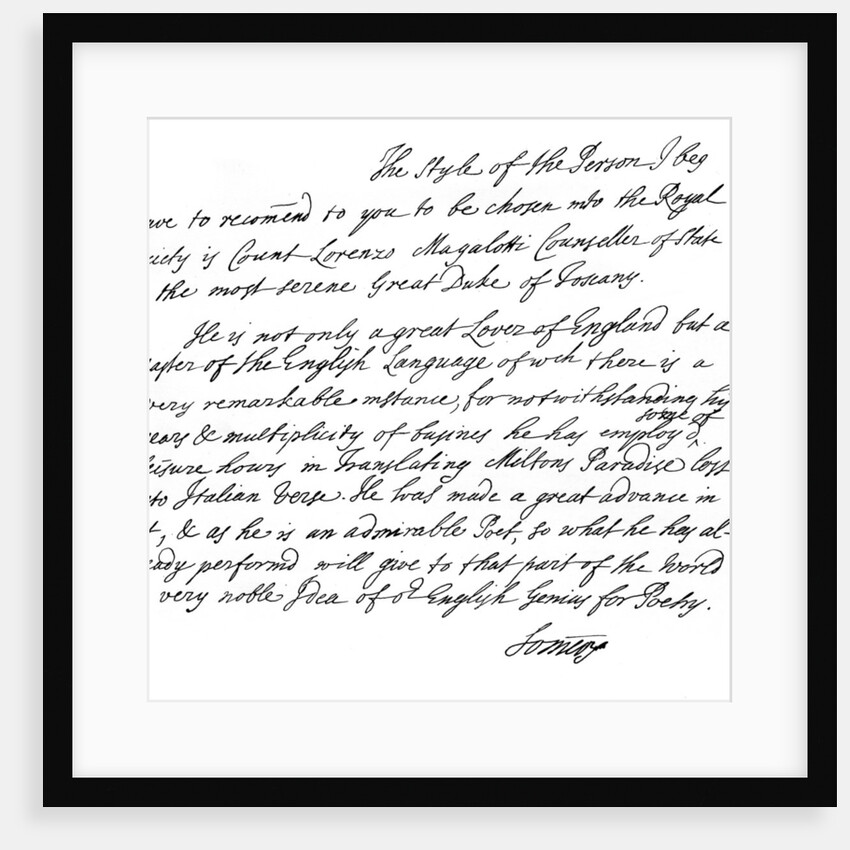 The Style of the Person I beg
ave to recom̄end to you to be chosen into the Royal
ciety is Count Lorenzo Magalotti Counseller of State
the most serene Great Duke of Toscany.
He is not only a great Lover of England but a
aster of the English Language of wch there is a
very remarkable instance, for notwithstanding his
some of
ears & multiplicity of busines he has employ'd ^
leisure hours in Translating Miltons Paradise Lost
to Italian Verse. He has made a great advance in
t, & as he is an admirable Poet, so what he has al-
eady performd will give to that part of the World
very noble Idea of or English Genius for Poetry.
Som̄ers